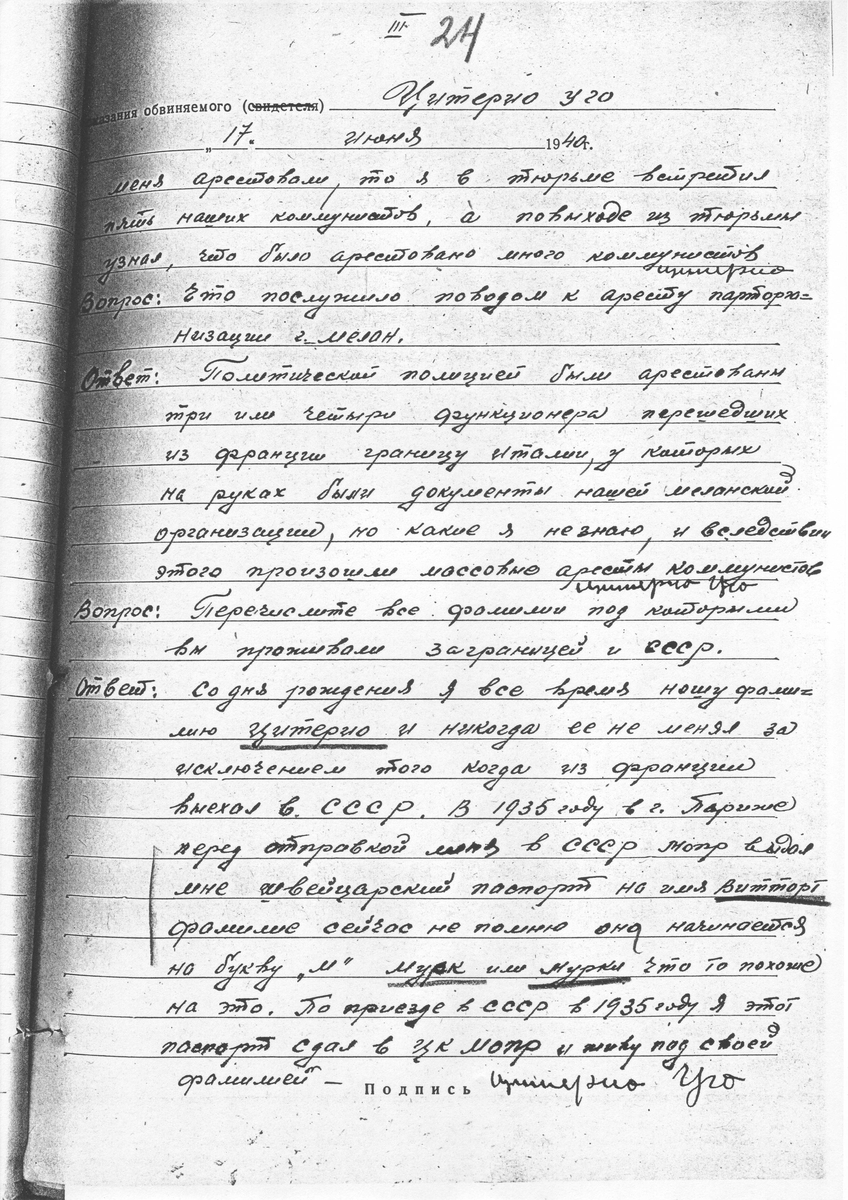 III 24
казания обвиняемого (свидетеля) Цитерио Уго
„17" июня 1940г.
меня арестовали, то я в тюрьме встретил
пять наших коммунистов, а повыходе из тюрьмы
узнал, что было арестовано много коммунистов
Цитерио
Вопрос: Что послужило поводом к аресту парторга-
низации г. Мелан.
Ответ: Политической полицией были арестованы
три или четыри функционера перешедших
из франции границу Италии, у которых
на руках были документы нашей меланский
организации, но какие я незнаю, и вследствии
этого произошли массовые аресты коммунистов
Цитерио Уго
Вопрос: Перечислите все фамилии под которыми
вы проживали заграницей и СССР.
Ответ: Со дня рождения я все время ношу фами-
лию Цитерио и никогда ее не менял за
исключением того когда из франции
выехал в СССР. В 1935 году в г. Париже
перед отправкой меня в СССР мопр выдал
мне швейцарский паспорт на имя Витторг
фамилие сейчас не помню она начинается
на букву „М" Мурк или Мурки что то похоже
на это. По приезде в СССР в 1935 году я этот
паспорт сдал в ЦК Мопр и живу под своей
фамилией –
Подпись Цитерио Уго